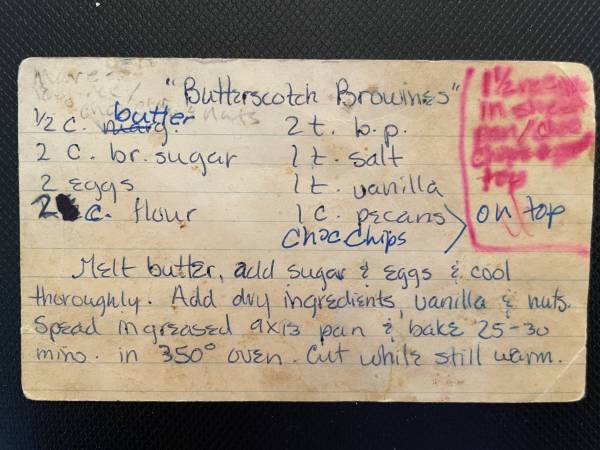 "Butterscotch Browines"
1/2 c. butter
2 t. b.p.
2 c. br. sugar
1 t. salt
2 eggs
1 t. vanilla
2 c. flour
1 c. pecans
Choc Chips
on top
1 1/2
in sheet
pan/choc
chips
top
nuts
Melt butter, add sugar & eggs & cool
thoroughly. Add dry ingredients, vanilla & nuts.
Spread in greased 9x13 pan & bake 25-30
mins. in 350° oven. Cut while still warm.